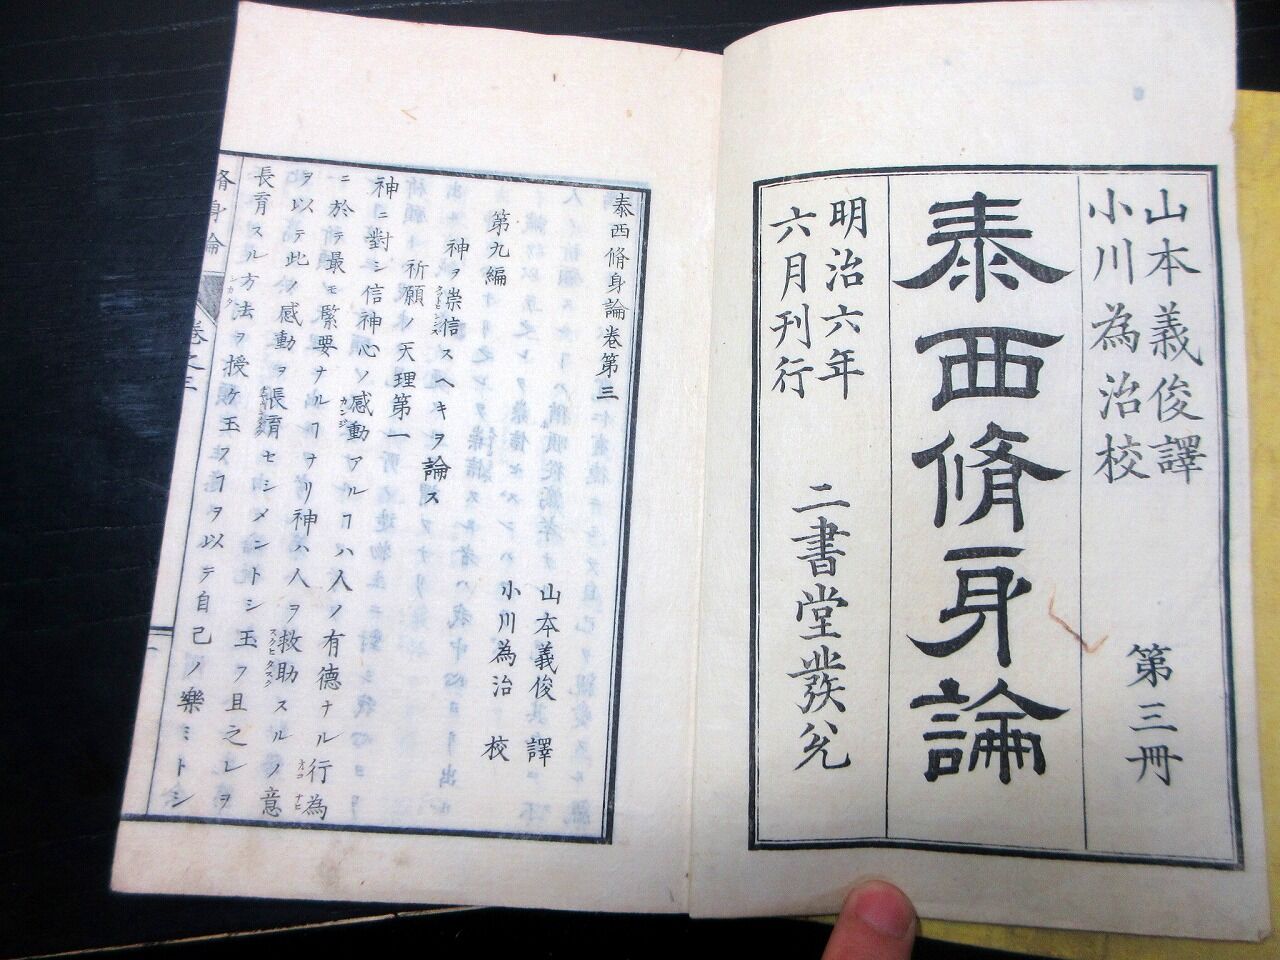 山本義俊譯
小川為治校
第三冊
泰西脩身論
明治六年
六月刊行
二書堂發兌
泰西脩身論卷第三
山本義俊 譯
小川為治 校
第九編
神ヲ崇信スヘキヲ論ス
祈願ノ天理第一
神ニ對シ信神心ノ感動アルヿハ人ノ有德ナル行為
ニ於テ最モ緊要ナルヿナリ神ハ人ヲ救助スルノ意
ヲ以テ此ノ感動ヲ張育セシメントシ玉フ且之レヲ
長育スル方法ヲ授ケ玉フヿヲ以テ自己ノ樂ミトシ
脩身論
卷之三
一